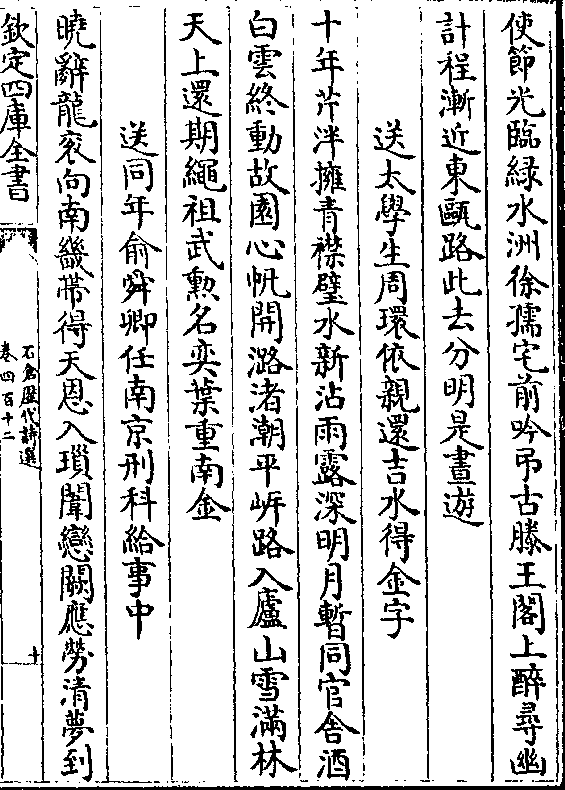 使節光臨緑水洲徐孺宅前吟弔古滕王閣上醉尋幽
計程漸近東甌路此去分明是晝遊
送太學生周環依親還吉水得金字
十年芹泮擁青襟璧水新沾雨露深明月暫同官舍酒
白雲終動故園心帆開潞渚潮平岍路入廬山雪滿林
天上還期繩祖武勲名奕葉重南金
送同年俞舜卿任南京刑科給事中
曉辭龍衮向南畿帶得天恩入瑣闈戀闕應勞清夢到
欽定四庫全書
石倉歷代詩選
卷四百十二
十